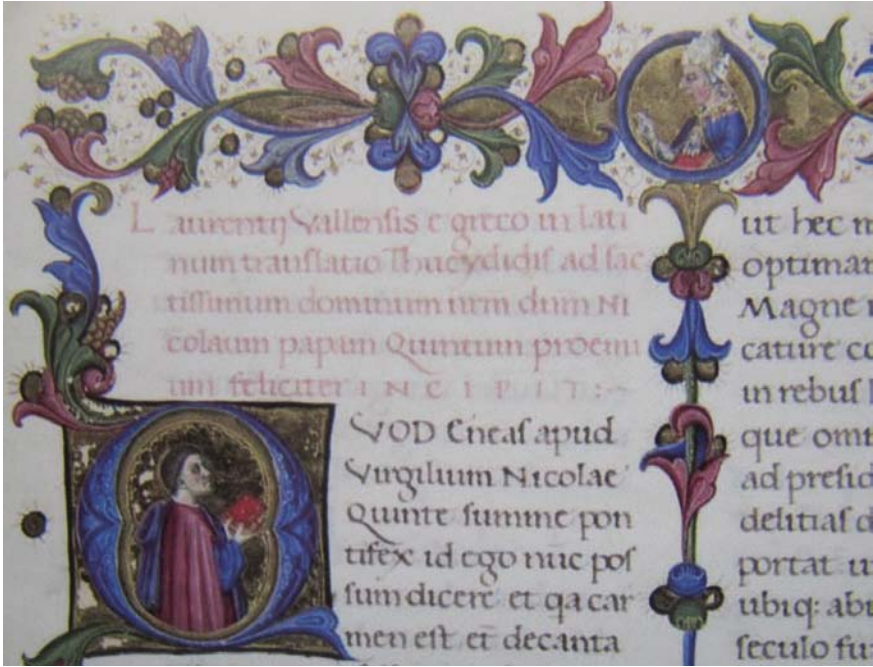 Laurentij Vallensis e greco in lati
num translatio Thucydidis ad sac
tissimum dominum nrm dum Ni
colaum papam Quintum proemi
um feliciter INCIPIT:~
QVOD Eneas apud
Virgilium Nicolae
Quinte summe pon
tifex id ego nuc pos
sum dicere et qa car
men est et decanta
ut hec m
optimar
Magne
cature co
in rebus
que omn
ad presid
delitias d
portat u
ubiq: abu
seculo fu